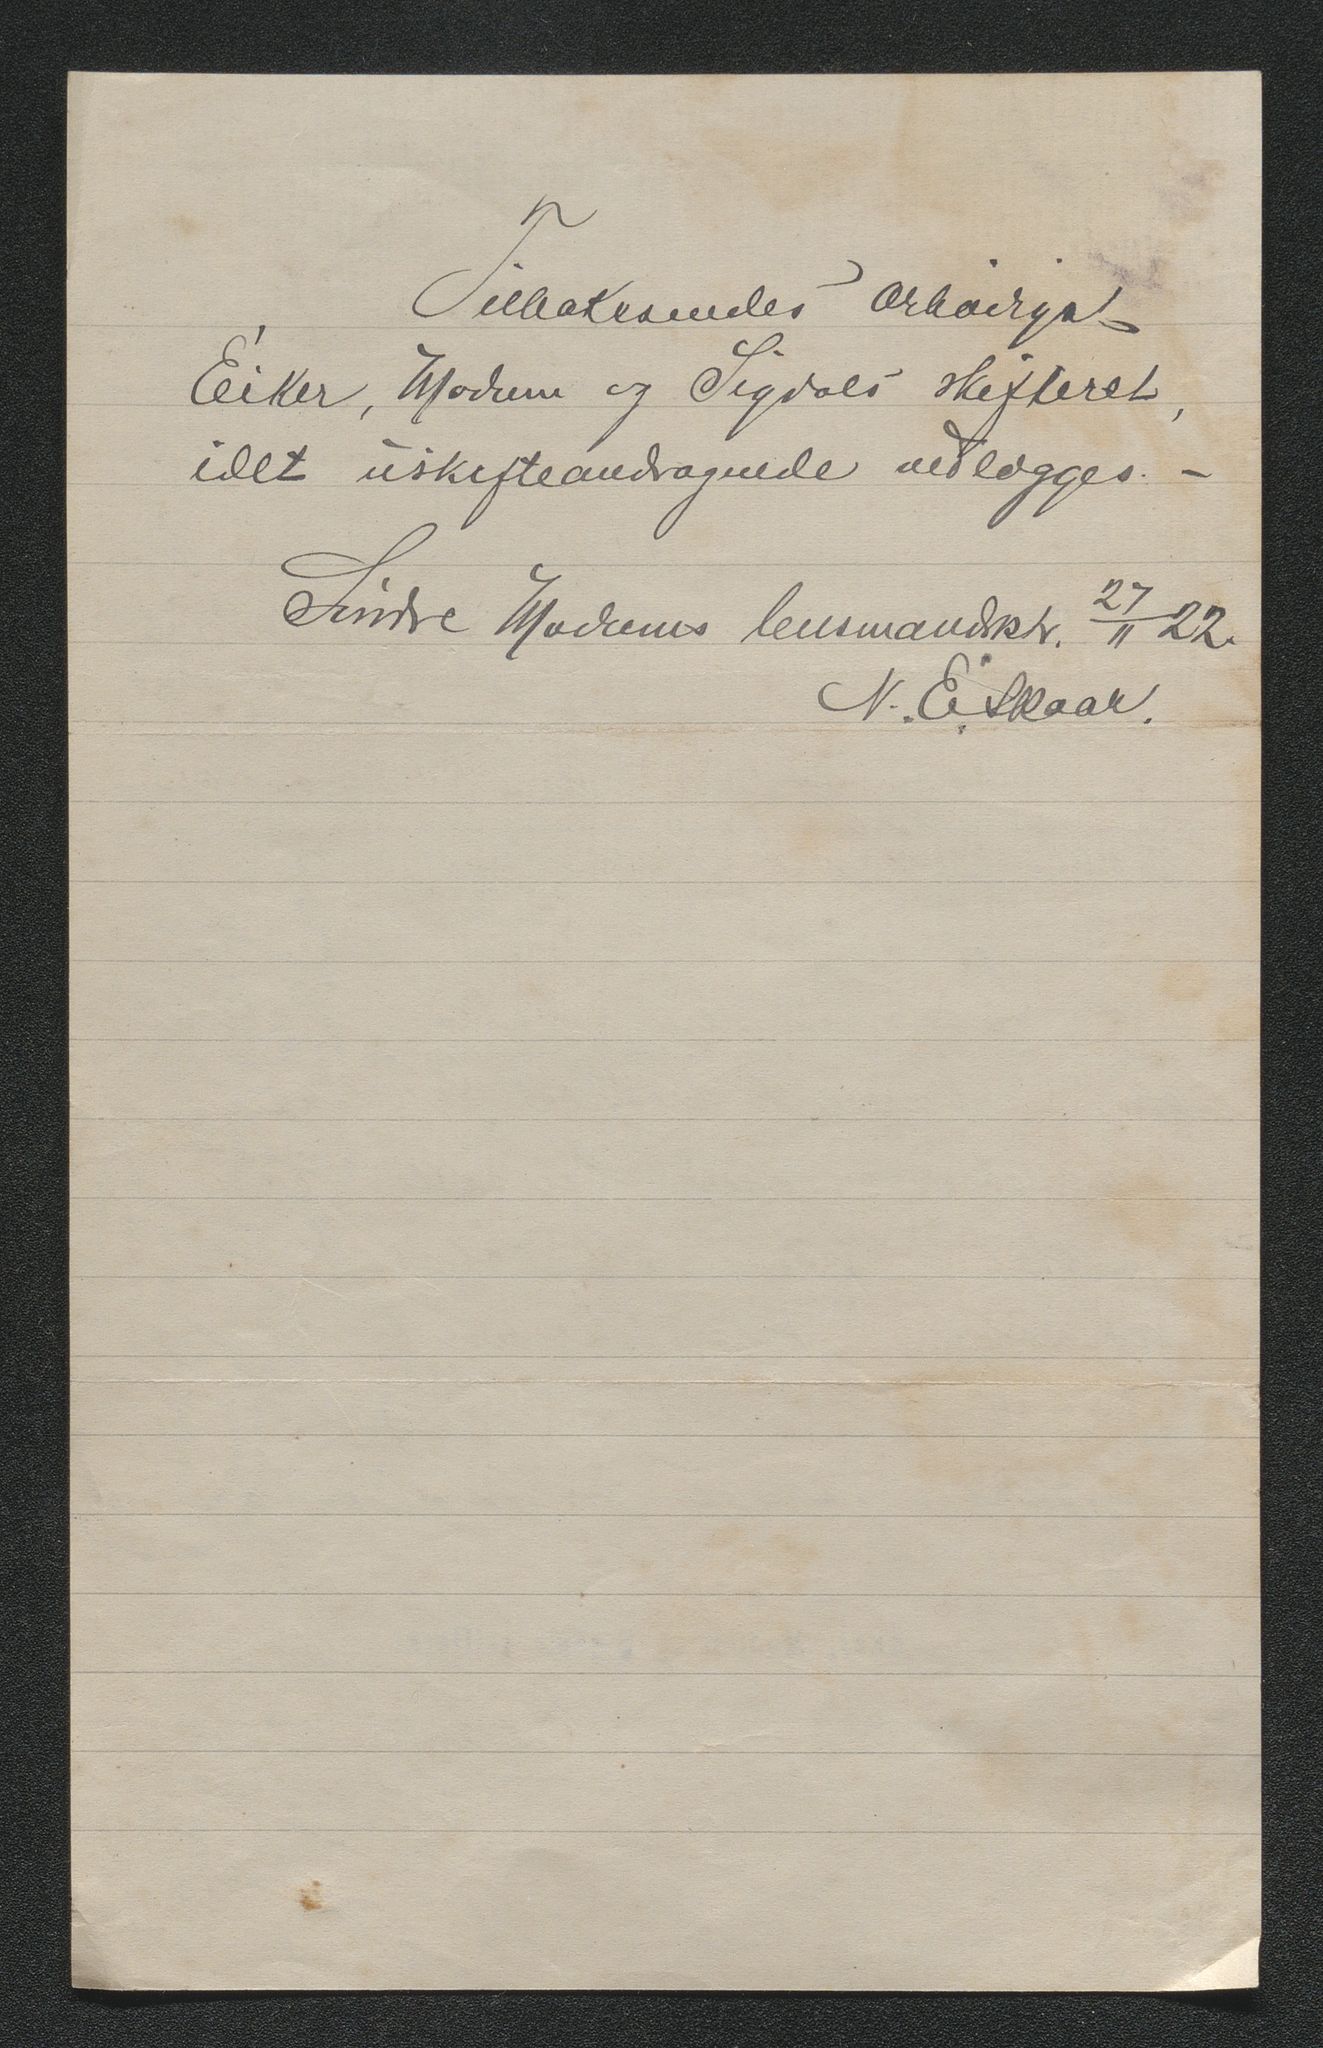 Tilbakesendes ærbødigst
Eiker, Modum og Sigdals skifteret,
idet uskifteandragende vedlægges. -
Søndre Modums lensmandsktr. 27/11 22.
N. E. Skaar.